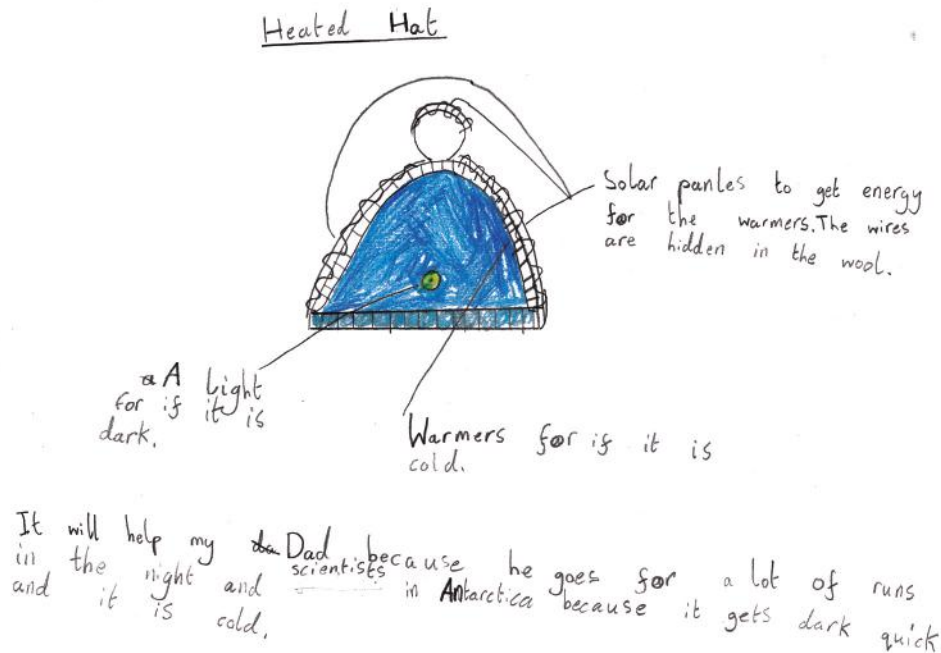 Heated Hat
Solar panles to get energy
for the warmers. The wires
are hidden in the wool.
A Light
for if it is
dark.
Warmers for if it is
cold.
It will help my Dad because he goes for a lot of runs
in the night and scientists in Antarctica because it gets dark quick
and it is cold.